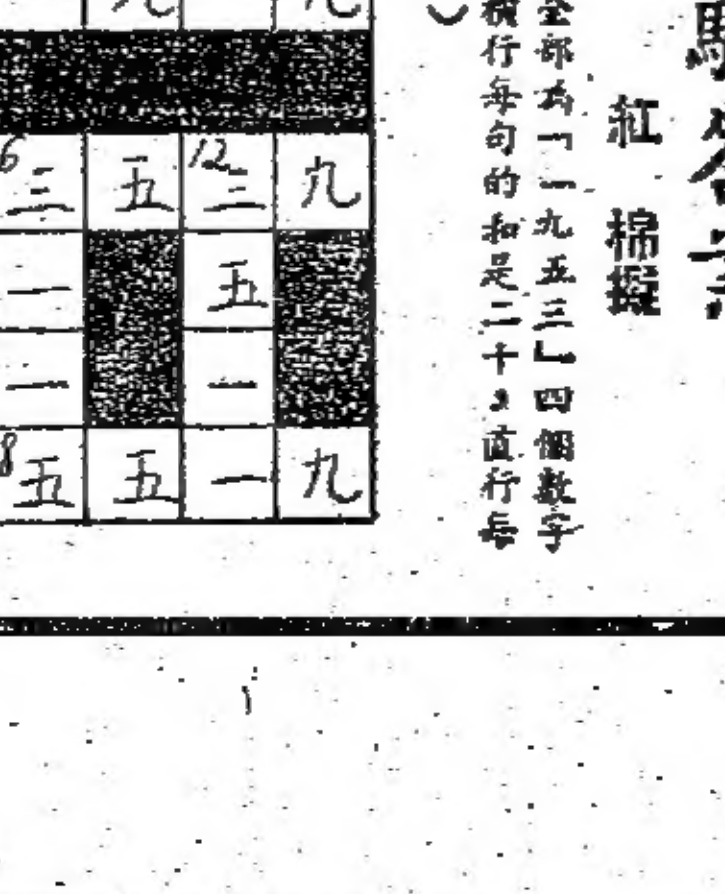 紅棉擬
全部為「一九五三」四個數字
橫行每句的和是二十；直行每
九
九
6三 五 12三 九
一 五
一 一
8五 五 一 九